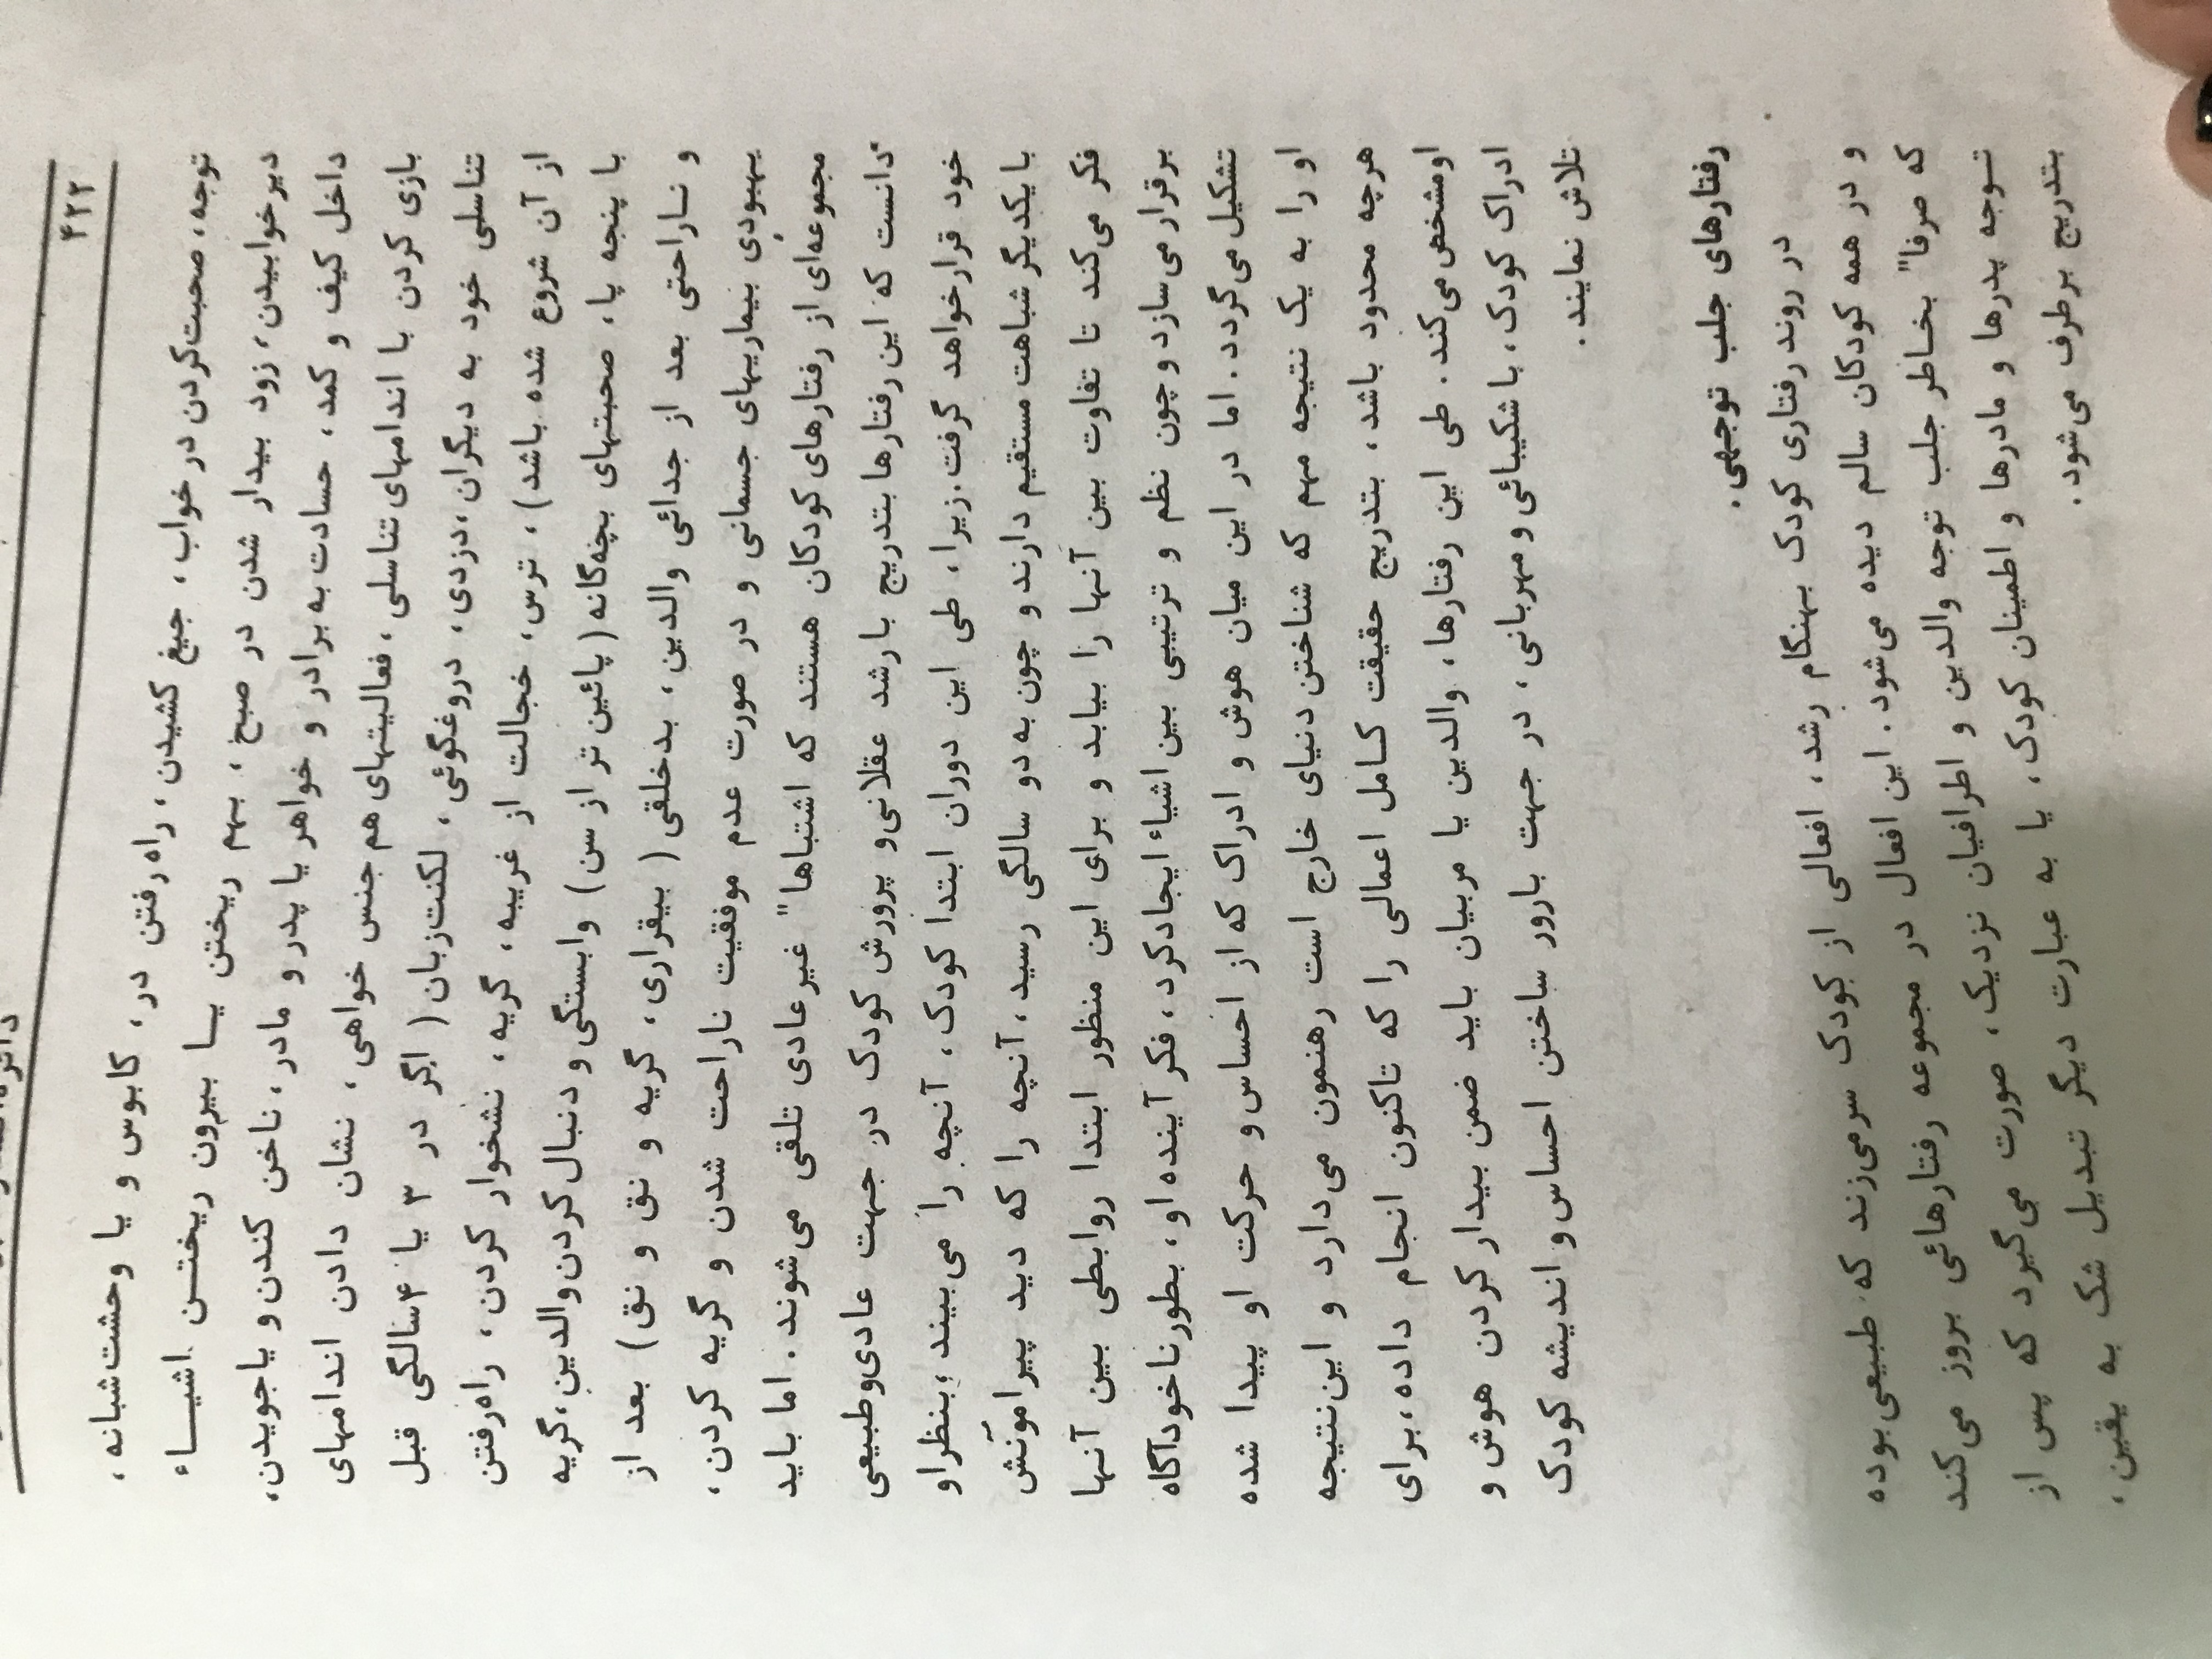 ۴۲۲
توجه، صحبت‌کردن در خواب، جیغ کشیدن، راه‌رفتن در، کابوس و یا وحشت‌شبانه،
دیرخوابیدن، زود بیدار شدن در صبح، بهم ریختن یــا بیرون ریختــن اشیــاء
داخل کیف و کمد، حسادت به برادر و خواهر یا پدر و مادر، ناخن کندن و یاجویدن،
بازی کردن با اندامهای تناسلی، فعالیتهای هم‌جنس خواهی، نشان دادن اندامهای
تناسلی خود به دیگران، دزدی، دروغگوئی، لکنت‌زبان (اگر در ۳ یا ۴سالگی قبل
از آن شروع شده باشد)، ترس، خجالت از غریبه، گریه، نشخوار کردن، راه‌رفتن
با پنجه پا، صحبتهای بچه‌گانه (پائین تر از سن) وابستگی و دنبال کردن والدین، گریه
و نــاراحتی بعد از جدائی والدین، بدخلقی ( بیقراری، گریه و نق و نق) بعد از
بهبودی بیماریهای جسمانی و در صورت عدم موفقیت ناراحت شدن و گریه کردن،
مجموعه‌ای از رفتارهای کودکان هستند که اشتباها" غیرعادی تلقی می‌شوند. اما باید
دانست که این رفتارها بتدریج با رشد عقلانی و پرورش کودک در جهت عادی‌وطبیعی
خود قرارخواهد گرفت. زیرا، طی این دوران ابتدا کودک، آنچه را می‌بیند، بنظر او
با یکدیگر شباهت مستقیم دارند و چون به دو سالگی رسید، آنچه را که دید پیرامونش
فکر می‌کند تا تفاوت بین آنها را بیابد و برای این منظور ابتدا روابطی بین آنها
برقرار می‌سازد و چون نظم و ترتیبی بین اشیاء ایجادکرد، فکر آینده او، بطور ناخودآگاه
تشکیل می‌گردد. اما در این میان هوش و ادراک که از احساس و حرکت او پیدا شده
او را به یک نتیجه مهم که شناختن دنیای خارج است رهنمون می‌دارد و این نتیجه
هرچه محدود باشد، بتدریج حقیقت کــامل اعمالی را که تاکنون انجام داده، برای
اومشخص می‌کند. طی این رفتارها، والدین یا مربیان باید ضمن بیدار کردن هوش و
ادراک کودک، با شکیبائی و مهربانی، در جهت بارور ساختن احساس و اندیشه کودک
تلاش نمایند.
رفتارهای جلب توجهی.
در روند رفتاری کودک بهنگام رشد، افعالی از کودک سرمی‌زند که طبیعی بوده
و در همه کودکان سالم دیده می‌شود. این افعال در مجموعه رفتارهائی بروز می‌کند
که صرفا" بخــاطر جلب توجه والدین و اطرافیان نزدیک، صورت می‌گیرد که پس از
تــوجه پدرها و مادرها و اطمینان کودک، یا به عبارت دیگر تبدیل شک به یقین،
بتدریج برطرف می‌شود.